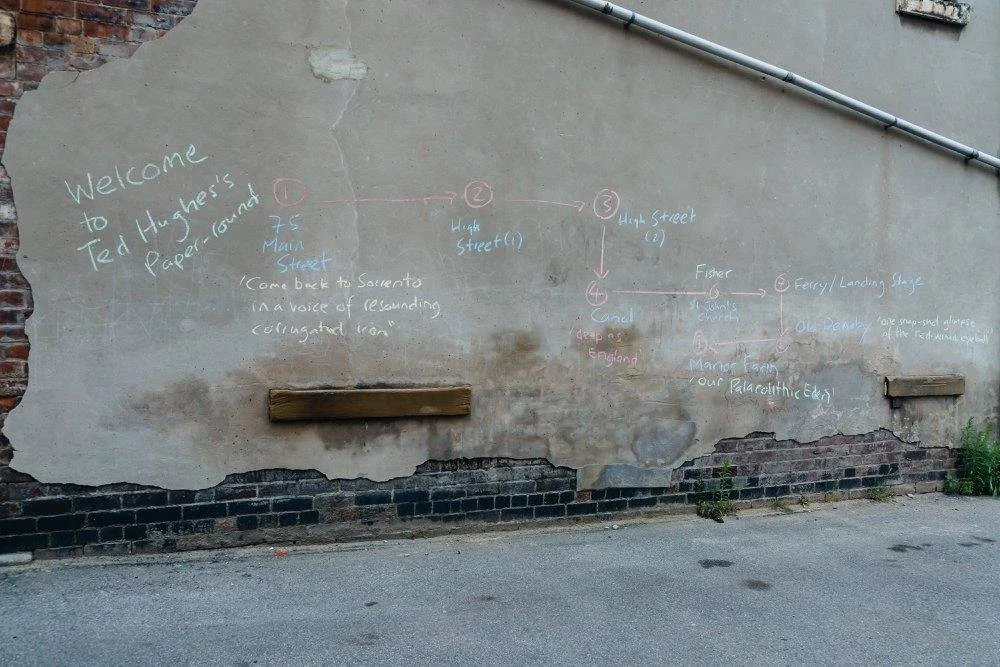 Welcome
to
Ted Hughes's
Paper-round
1
75
Main
Street
"Come back to Sorrento
in a voice of resounding
corrugated iron"
2
High
Street (1)
3
High Street
(2)
4
Canal
"deep as
England"
Fisher
St John's
Church
Ferry/Landing Stage
Old Denaby
"one snap-shot glimpse
of the
eyeball
Manor Farm
"our Palaeolithic Eden"